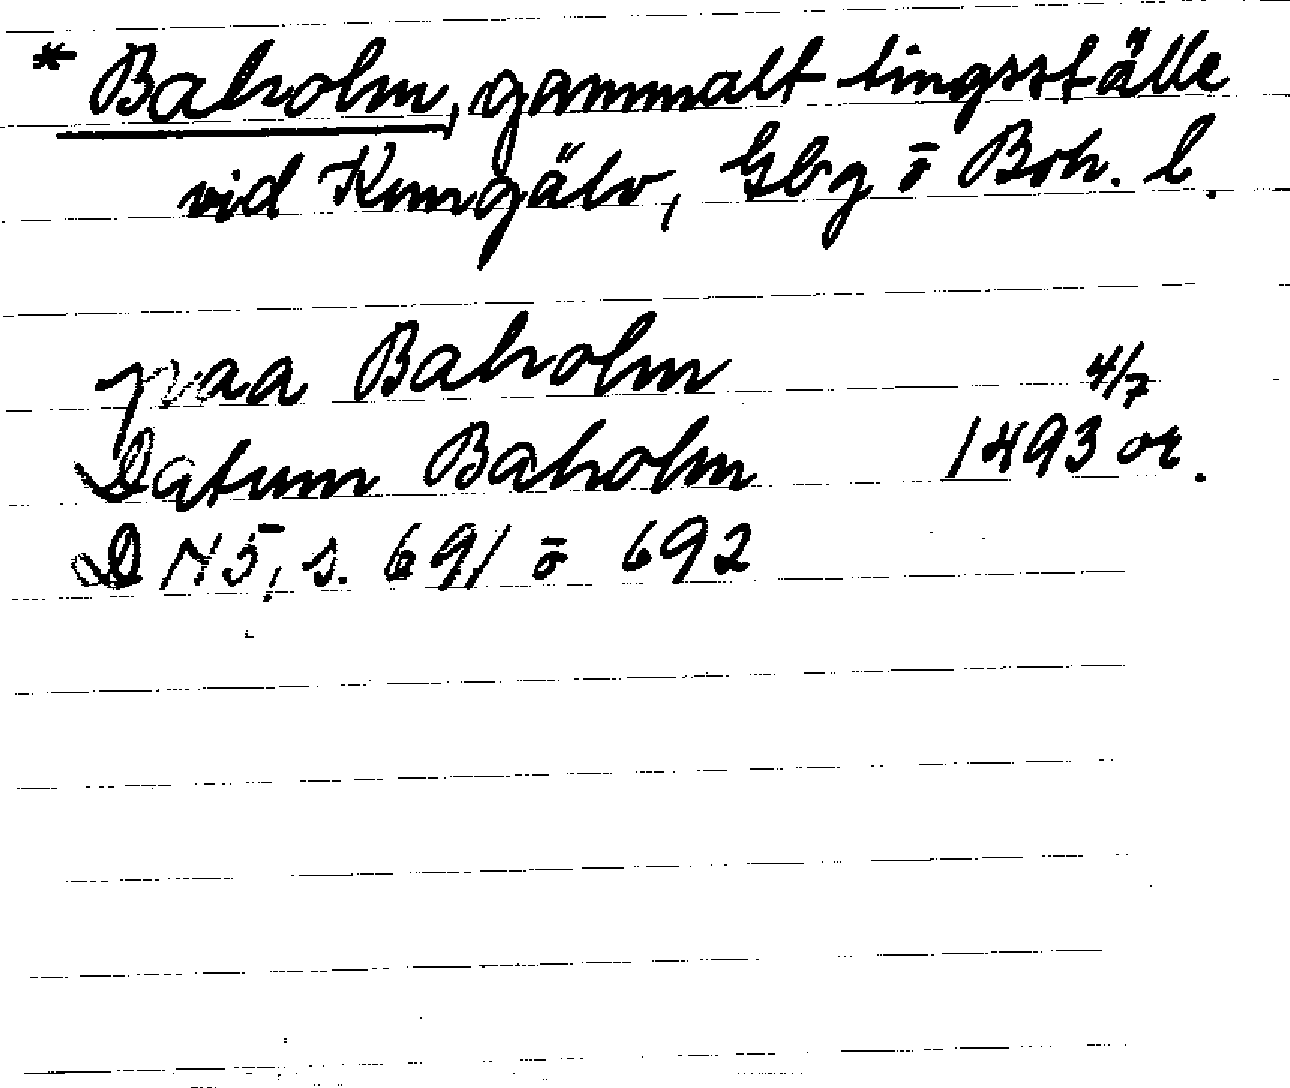 * Baholm, gammalt tingsställe
vid Kungälv, Gbg o Boh. l.
paa Baholm 4/7
Datum Baholm 1493 or.
DN5, s. 691 o 692